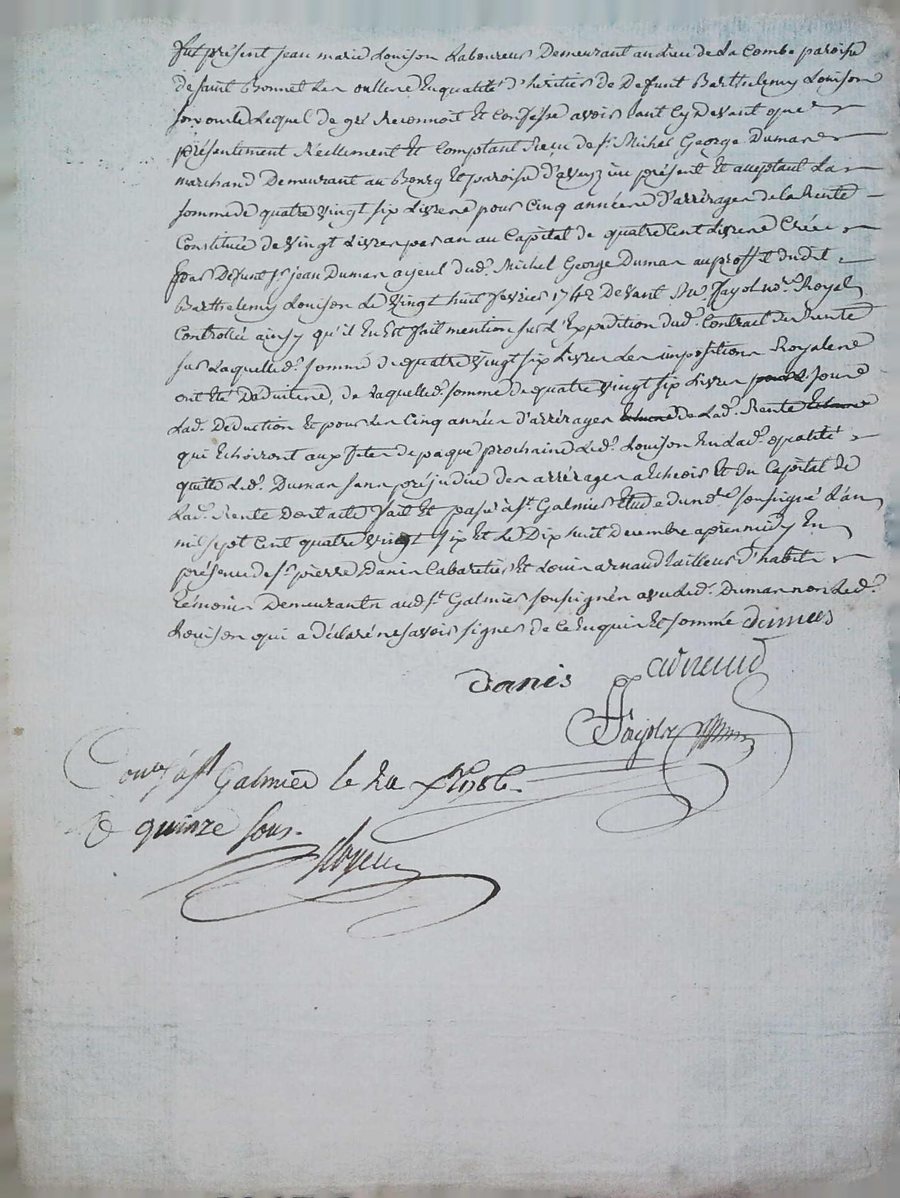 fut présent jean marie Louison Laboureur Demeurant au Lieu de La Combe paroisse
de saint Bonnet Les oulles En qualité d'héritier de Defunt Barthelemy Louison
son oncle Lequel de gré Reconnoit Et Confesse avoir tant Cy Devant que
présentement Réellement Et Comptant Reçu de sr. Michel George Dumas
marchand Demeurant au Bourg Et paroise d'aveyz ici présent Et acceptant La
somme de quatre vingt six Livres pour Cinq années d'arrérages de la Rente
Constituée de vingt Livres par an au Capital de quatre Cent Livres Créée
par Defunt sr. jean Dumas ayeul dud. Michel George Dumas au proffit dudit
Barthelemy Louison Le vingt huit fevrier 1742 Devant Me. fayol nore. Royal
Controllé ainsy qu'il En Est fait mention sur L'Expedition dud. Contrat de Rente
sur Laquelle d. somme de quatre vingt six Livres Les impositions Royales
ont été Deduittes, de Laquelle d. somme de quatre vingt six Livres pour
Lad. Déduction Et pour Les Cinq années d'arrérages de Lad. Rente
qui Echoiront aux fetes de paque prochaine Led. Louison En Lad. qualité
quitte Led. Dumas sans préjudice des arrérages a Echeoir Et du Capital de
Lad. Rente Dont acte fait Et passé à st. Galmier Etude du nre. soussigné L'an
mil sept Cent quatre vingt six Et Le Dix huit decembre apres midy En
présence de sr. pierre Danis Cabaretier Et Louis arnaud tailleur d'habits
témoins Demeurants aud. st. Galmier soussignés avec Led. Dumas non Led.
Louison qui a déclaré ne savoir signer de Ce Enquis Et sommé dumas
danis arnaud
fayolle
Coné. à st Galmier le 1786.
R quinze sous.